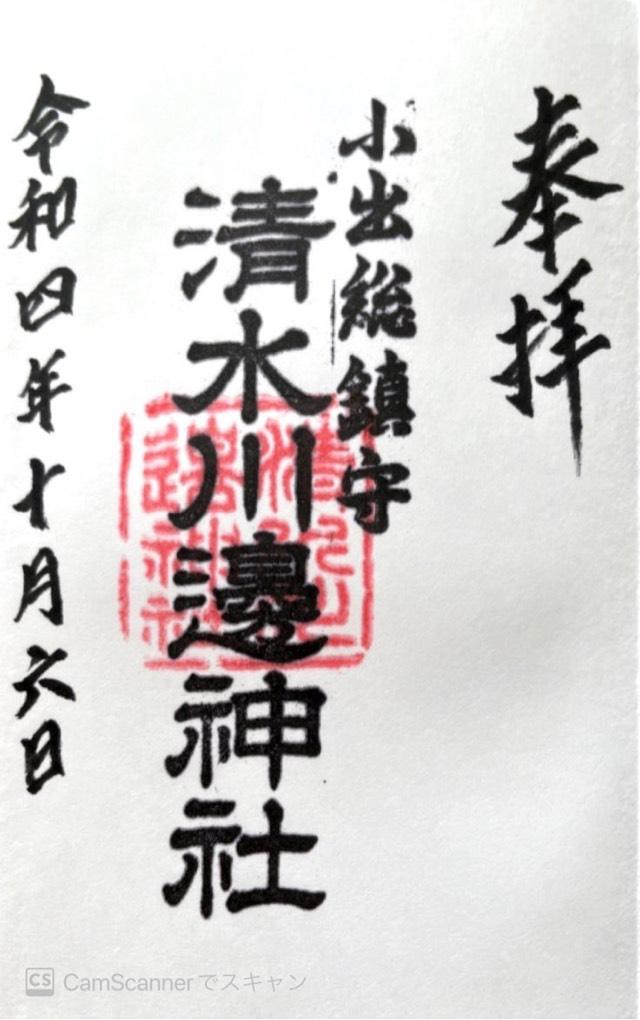 奉拝
小出総鎮守
清水川邊神社
令和四年十月六日
CS CamScannerでスキャン